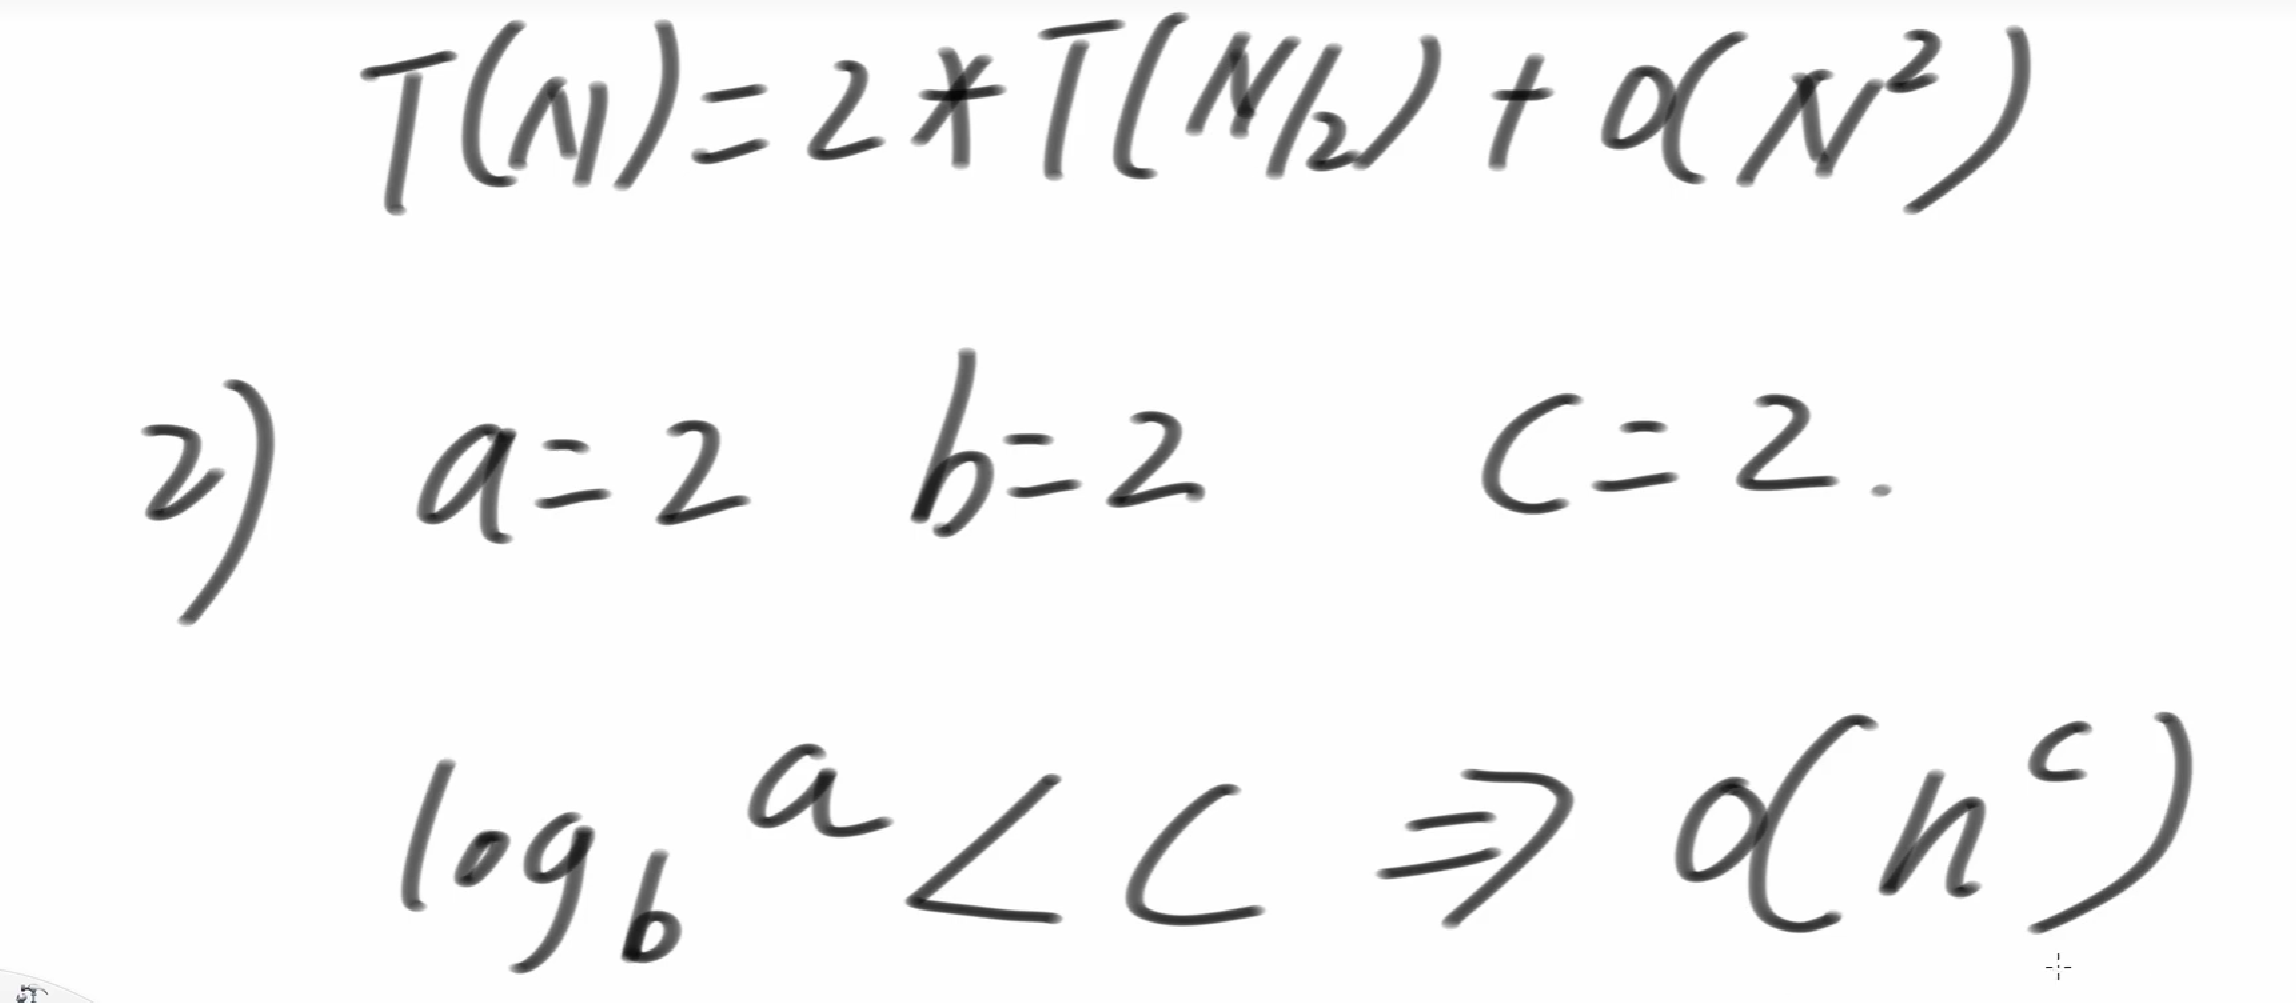 T(N)=2*T(N/2)+O(N²)
2) a=2 b=2 c=2.
log_b^a<c⇒O(n^c)